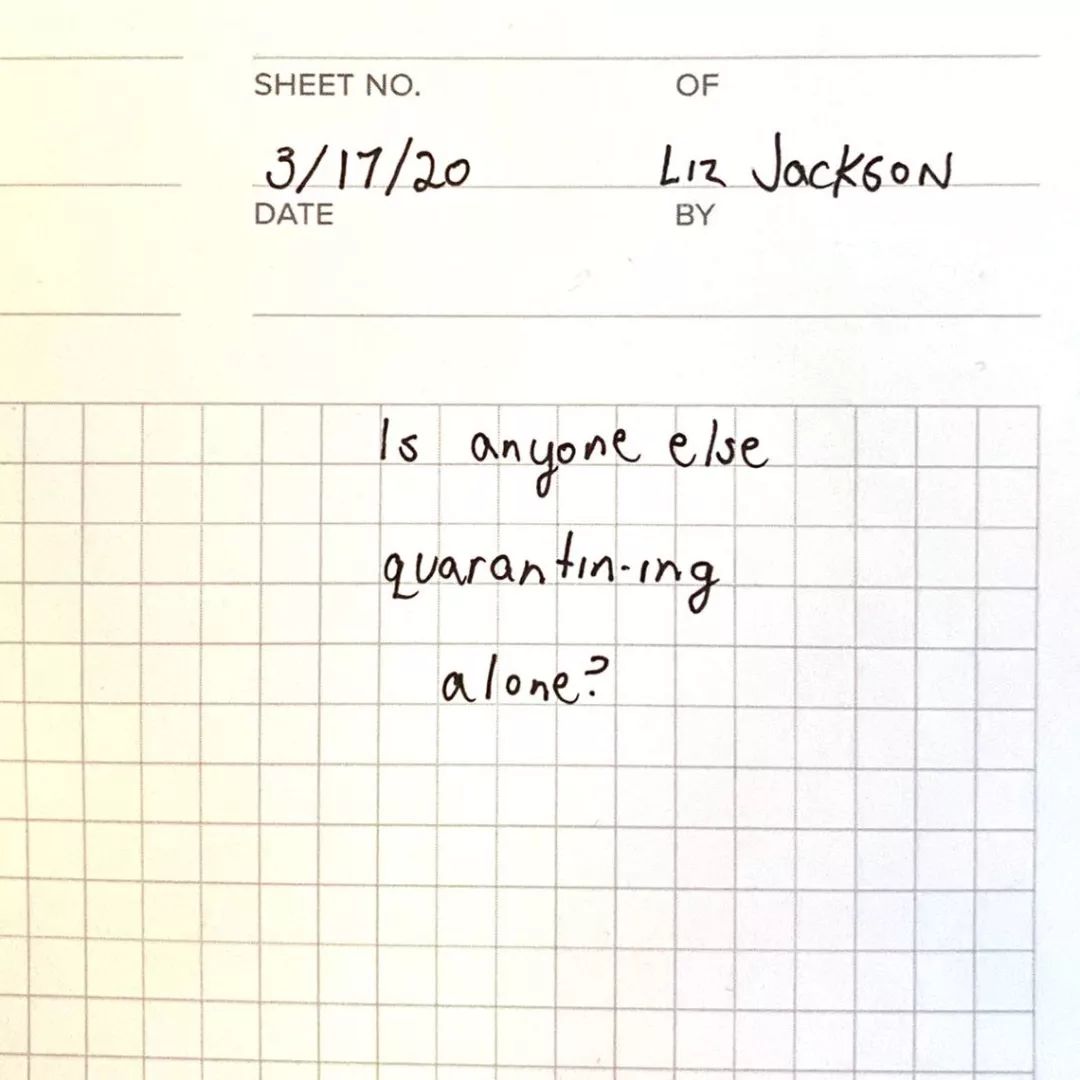 SHEET NO. OF
3/17/20 Liz Jackson
DATE BY
Is anyone else
quarantin-ing
alone?